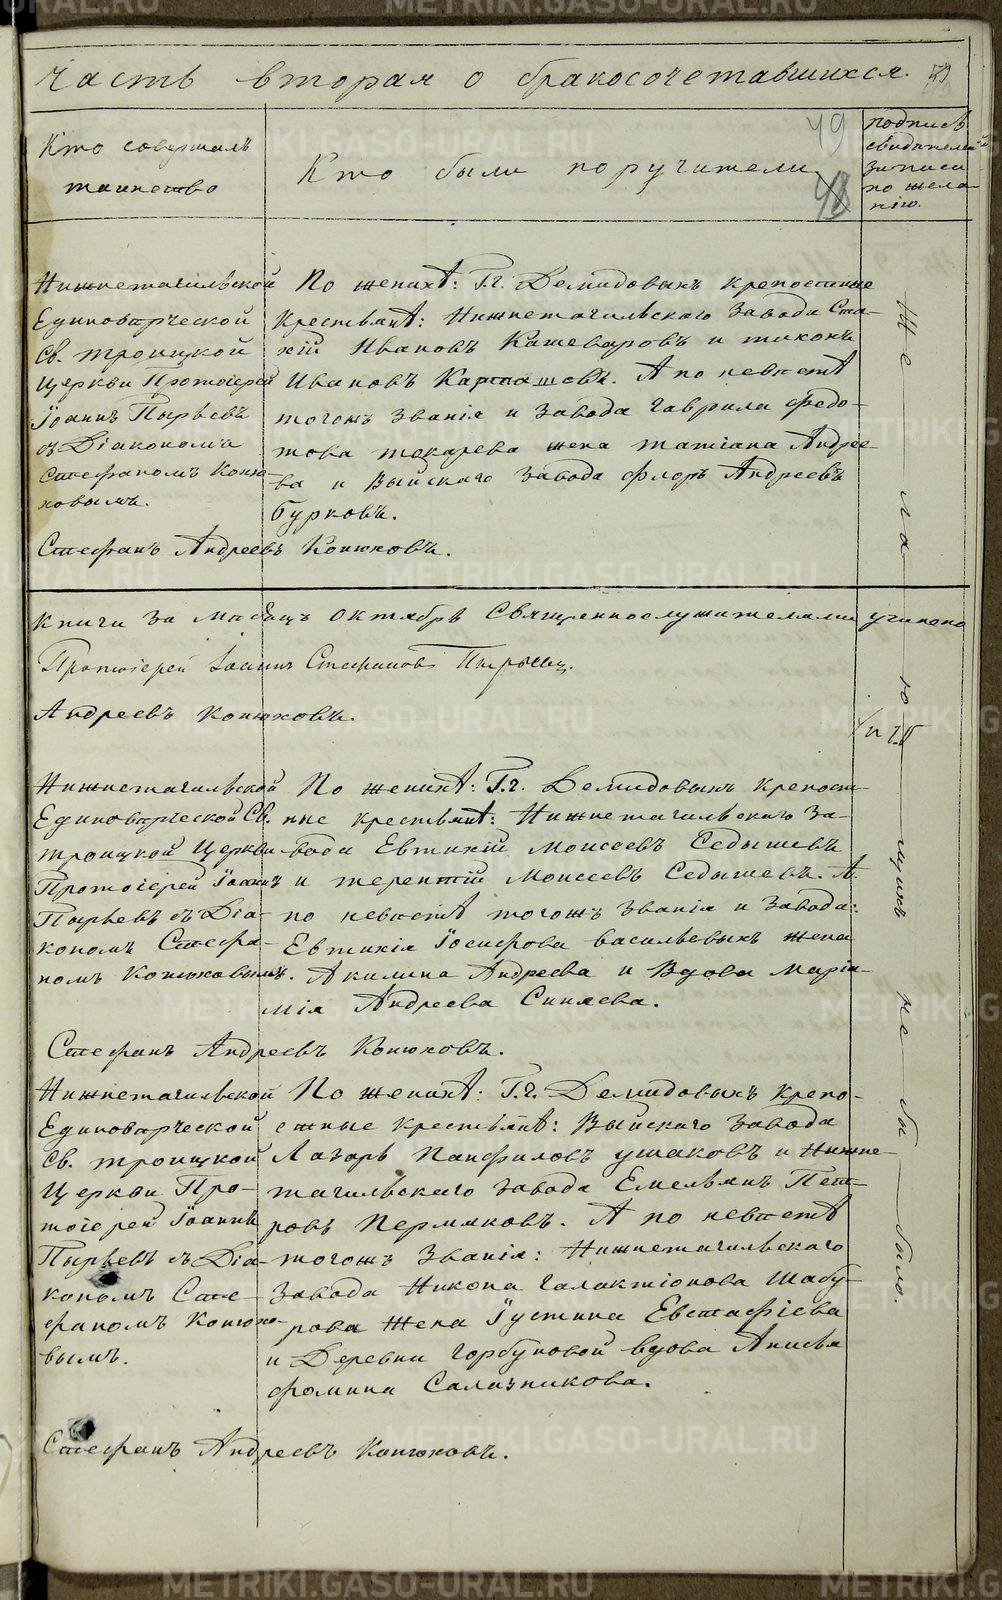 Часть вторая о бракосочетавшихся.
49
48
Кто совершалъ
таинство
Кто были поручители
подпись
свидѣтелей
записи
по жела-
нію.
Нижнетагильской
Единовѣрческой
Св. Троицкой
Церкви Протоіерей
Іоаннъ Пырьевъ
съ Діакономъ
Стефаномъ Коню-
ховымъ.
По женихѣ: Г.г. Демидовыхъ крепостные
Крестьянѣ: Нижнетагильскаго Завода Ста-
хій Ивановъ Кашеваровъ и тихонъ
Ивановъ Карташевъ. А по невѣстѣ
тогожъ Званія и Завода Гаврила Федо-
това токарева жена татіана Андрее-
ва и Выйскаго Завода Флоръ Андреевъ
бурковъ.
Стефанъ Андреевъ Конюховъ.
Книги За Мѣсяцъ Октябрь Священнослужителями учинено
Протоіерей Іоаннъ Стефановъ Пырьевъ.
Андреевъ Конюховъ.
Нижнетагильской
Единоверческой Св.
троицкой Церкви
Протоіерей Іоаннъ
Пырьевъ съ Діа-
кономъ Стефа-
номъ Конюховымъ.
По женихѣ: Г.г. Демидовыхъ крепост-
ные крестьянѣ: Нижнетагильскаго За-
вода Евтихій Моисеевъ Седышевъ
и терентій Моисеевъ Седышевъ. А
по невѣстѣ тогожъ Званія и Завода:
Евтихія Іосифова васильевыхъ жена
Акилина Андреева и Вдова Маріа-
мія Андреева Синяева.
Стефанъ Андреевъ Конюховъ.
Нижнетагильской
Единоварческой
Св. троицкой
Церкви Про-
тоіерей Іоаннъ
Пырьевъ съ Діа-
кономъ Сте-
фаномъ Коню-
хо-
вымъ.
По женихѣ: Г.г. Демидовыхъ крепо-
стные крестьянѣ: Выйскаго Завода
Лазарь Панфиловъ ушаковъ и Нижне-
тагильскаго завода Емельянъ Пет-
ровъ Пермяковъ. А по невѣстѣ
тогожъ Званія: Нижнетагильскаго
Завода Никона галактіонова Шабу-
рова жена Іустина Евстафіева
и Деревни Горбуновой вдова Анисья
фомина Салазникова.
Стефанъ Андреевъ Конюховъ.
Желающихъ не было.
METRIKI.GASO-URAL.RU